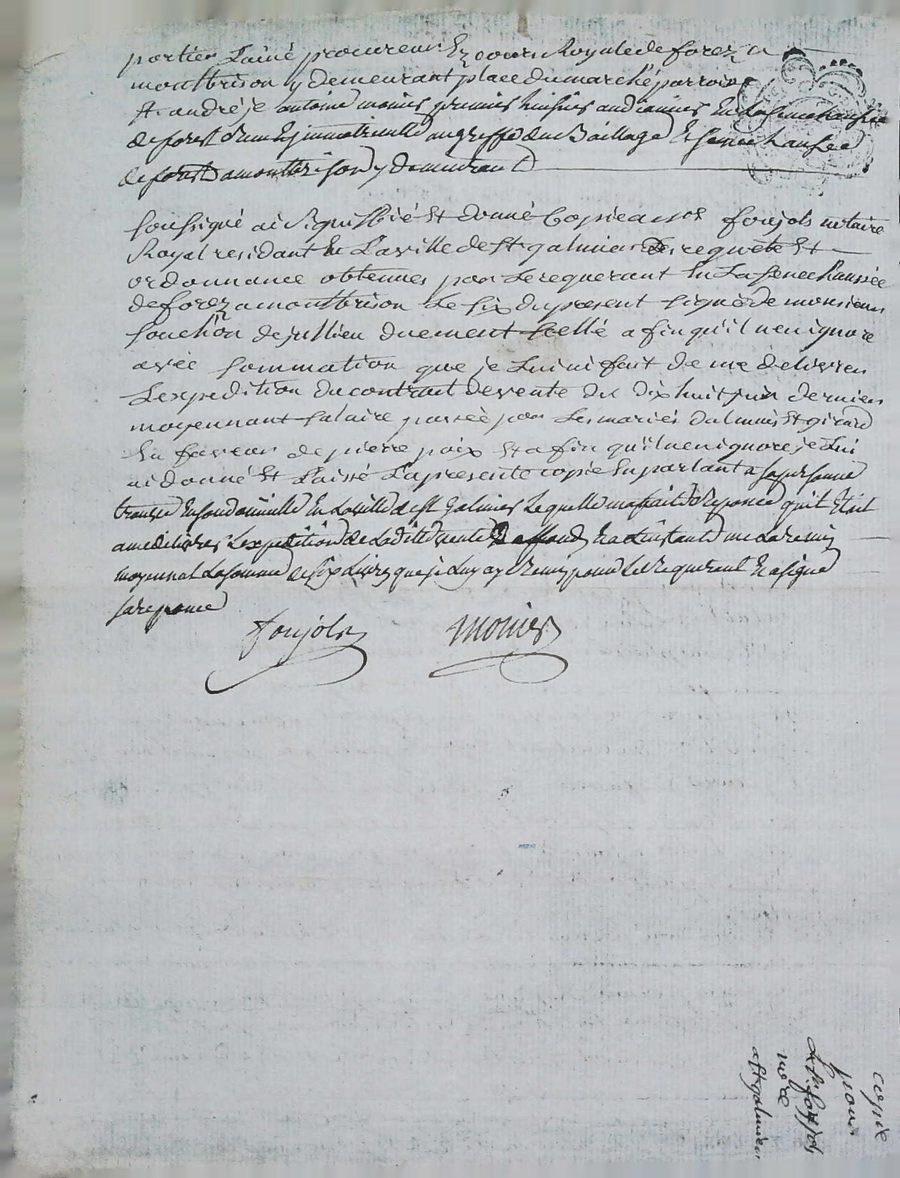 portier L'ainé procureur Ez cours Royale de forez a
montbrison y demeurant place du marché parroisse
St. andré je antoine monier premier huissier audiancier En la senechaussée
de forest Immatriculé au greffe du Bailliage Et senechaussée
de forest a montbrison y demeurant
soussigné ai signiffié Et donné Copie a me foujols notaire
Royal residant En la ville de St galmier Des requete Et
ordonnance obtenues par Le requerant En La senechaussée
de forez a montbrison Le six du present signé de monsieur
souchon de jullien duement scellé a fin qu'il n'en ignore
avec sommation que je Lui ai fait de me delivrer
L'expedition du contrat de vente du dix huit juin dernier
moyennant salaire passée par Les mariés Et girard
En faveur de pierre paix Et a fin qu'il n'en ignore je Lui
ai donné Et Laissé La presente copie En parlant a sa personne
trouvé En son domicille En la ville de st Galmier Lequel m'a fait Reponce qu'il Etoit
a me delivrer L'expedition de La ditte vente Et a L'instant me La remis
moyennant La somme de six Livres que je Luy ay Remis pour Le Requerant Et a signé
sa reponce
foujols monier
copie
pour
Me foujols
nre
a St galmier